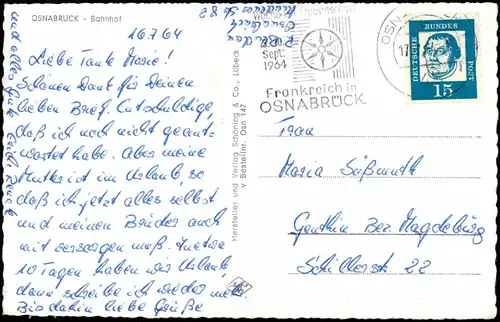 OSNABRÜCK - Bahnhof
16.7.64
Liebe Tante Marie!
Schönen Dank für Deinen
lieben Brief. Entschuldige,
daß ich noch nicht geant-
wortet habe. Aber meine
Mutter ist im Urlaub, so
daß ich jetzt alles selbst
und meinen Bruder auch
mit versorgen muß. In etwa
10 Tagen haben wir Urlaub,
dann schreibe ich wieder mehr.
Bis dahin liebe Grüße
und alles Gute
Hersteller und Verlag Schöning & Co., Lübeck
Bestellnr. Osn 147
Sept.
1964
Frankreich in
OSNABRÜCK
OSN
17.
DEUTSCHE BUNDES POST
15
Frau
Maria Süßmuth
Genthin Bez. Magdeburg
Schillerstr. 22